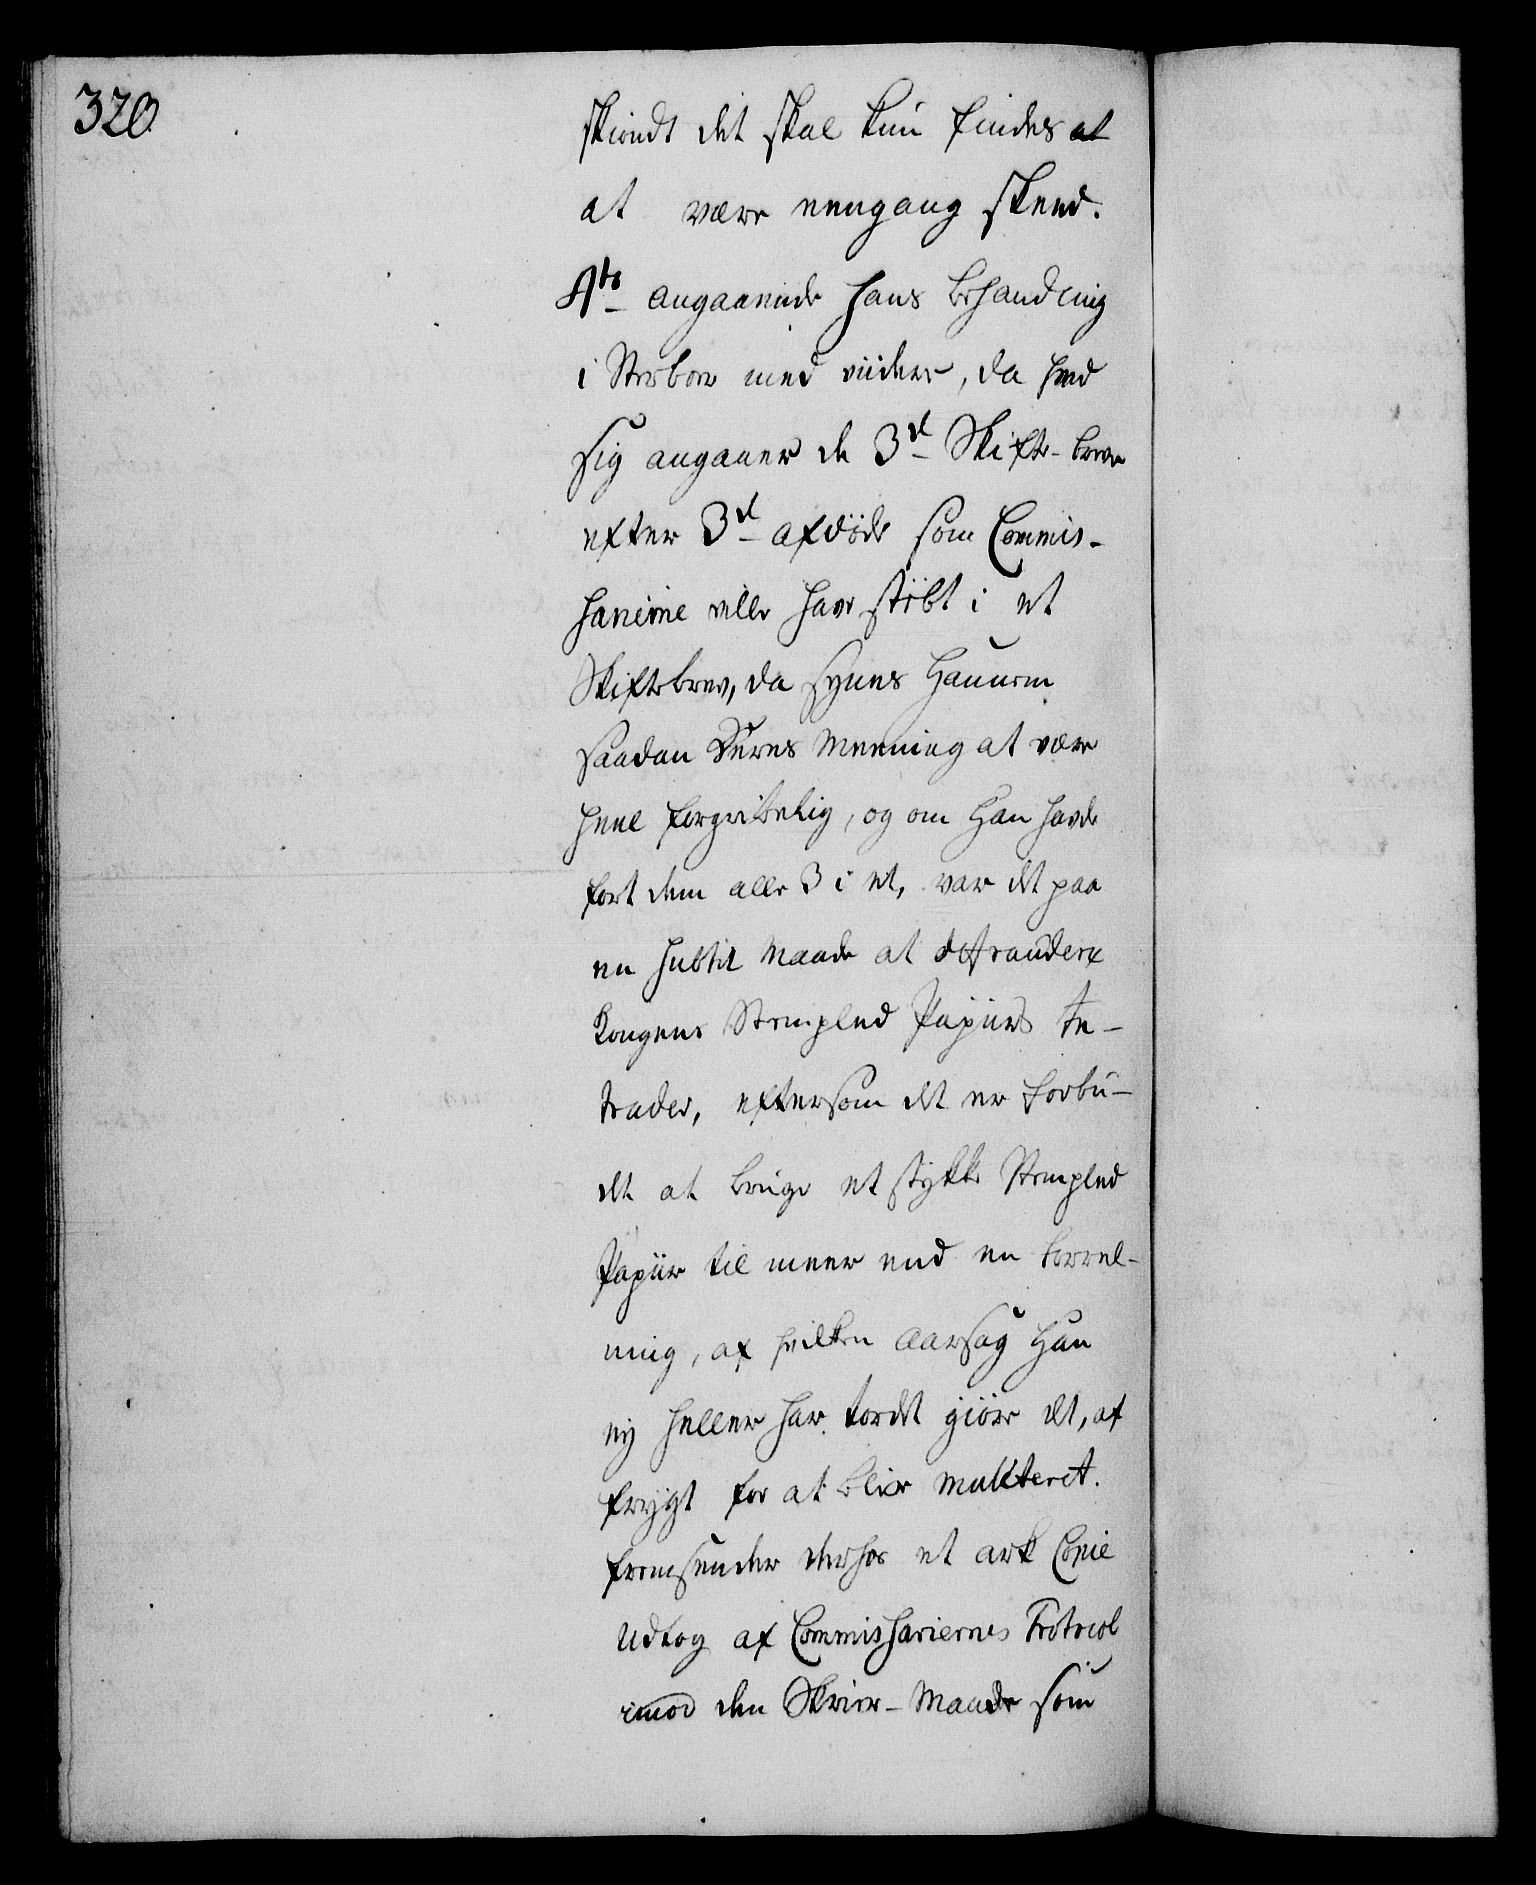 320.
skiøndt det skal kun findes at
at være eengang skeed.
4to angaaende hans Behandling
i Sterboer med viidere, da hvad
sig angaaer de 3de Skifte-breve
efter 3de afdøde som Commis-
sarierne ville have støbt i et
Skiftebrev, da synes Hannem
saadan Deres Meening at være
heel forgribelig, og om Han havde
ført dem alle 3 i et, var det paa
en subtil Maade at defraudere
Kongens Stempled Papiirs In-
trader, eftersom det er forbu-
det at bruge et stykke Stempled
Papiir til meer end en forret-
ning, af hvilken Aarsag Han
ey heller har tordet giøre det, af
frygt for at blive mulkteret.
fremsender derhos et ark Copie
Udtog af Commissariernes Protocol
imod den Skrive-Maade som